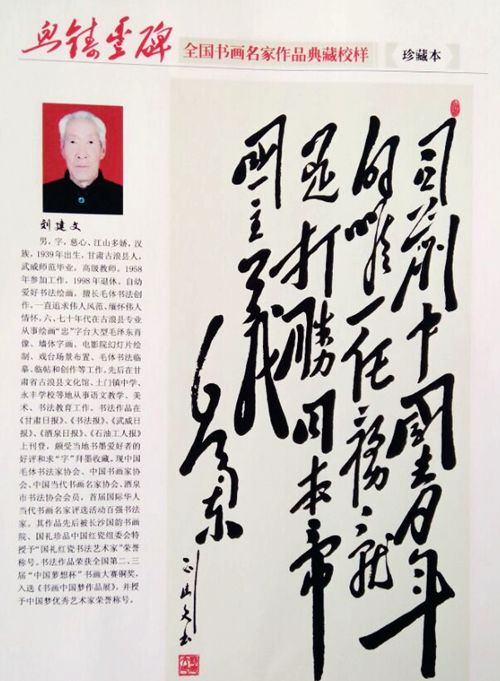 全国书画名家作品典藏校样
珍藏本
刘建文
男，字，慈心、江山多娇，汉
族，1939年出生，甘肃古浪县人，
武威师范毕业，高级教师。1958
年参加工作，1998年退休。自幼
爱好书法绘画，擅长毛体书法创
作，一直追求伟人风范、缅怀伟人
情怀，六、七十年代在古浪县专业
从事绘画“忠”字台大型毛泽东肖
像、墙体字画、电影院幻灯片绘
制、戏台场景布置、毛体书法临
摹、临帖和创作等工作。先后在甘
肃省古浪县文化馆、土门镇中学、
永丰学校等地从事语文教学、美
术、书法教育工作。书法作品在
《甘肃日报》、《书法报》、《武威日
报》、《酒泉日报》、《石油工人报》
上刊登，颇受当地书墨爱好者的
好评和求“字”拜墨收藏。现中国
毛体书法家协会、中国书画家协
会、中国当代书画名家协会、酒泉
市书法协会会员，首届国际华人
当代书画名家评选活动百强书法
家。其作品先后被长沙国韵书画
院、国礼珍品中国红瓷组委会特
授予“国礼红瓷书法艺术家”荣誉
称号。书法作品荣获全国第二、三
届“中国梦想杯”书画大赛铜奖，
入选《书画中国梦作品展》，并授
予中国梦优秀艺术家荣誉称号。
目前中國青年
的唯一任務就
是打勝日本帝
國主義
毛泽东
刘建文书